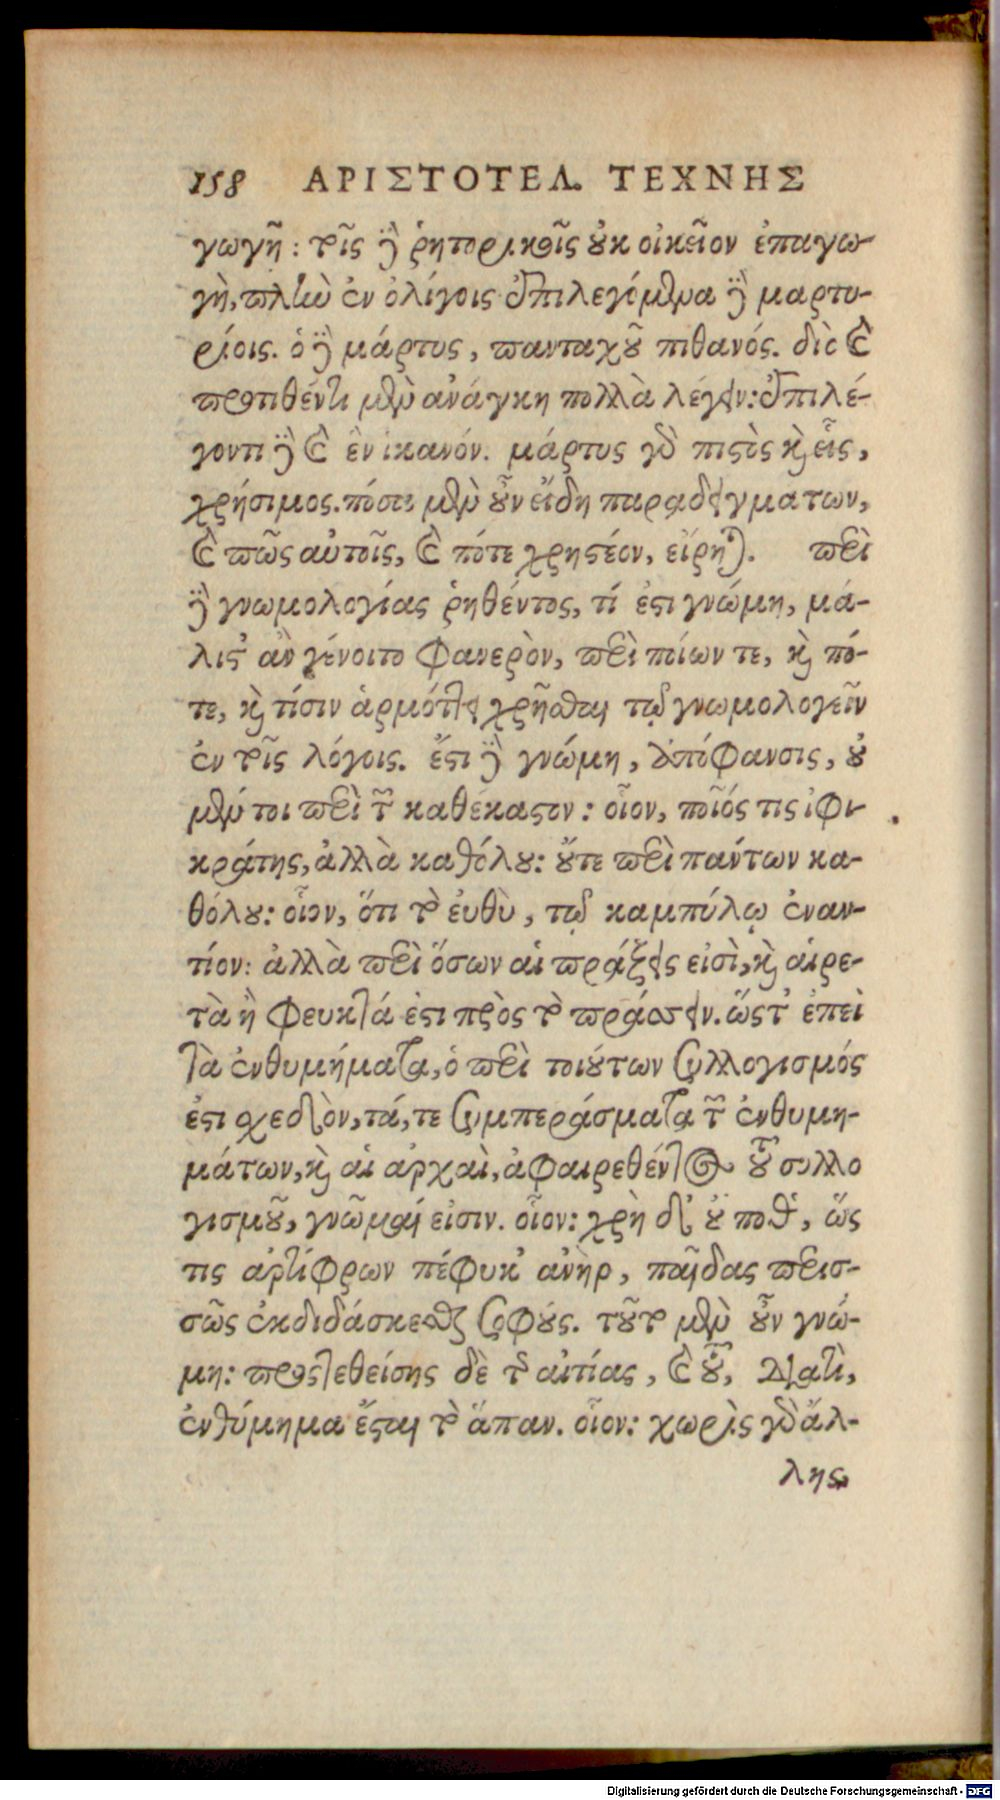 158 ΑΡΙΣΤΟΤΕΛ. ΤΕΧΝΗΣ
γωγῇ: τοῖς δὲ ῥητορικοῖς οὐκ οἰκεῖον ἐπαγω-
γὴ, πλὴν ἐν ὀλίγοις· ἐπιλεγόμενα δὲ μαρτυ-
ρίοις. ὁ δὲ μάρτυς, πανταχοῦ πιθανός. διὸ καὶ
προτιθέντι μὲν ἀνάγκη πολλὰ λέγειν: ἐπιλέ-
γοντι δὲ καὶ ἓν ἱκανόν. μάρτυς γὰρ πιστὸς καὶ εἷς,
χρήσιμος. πόσα μὲν οὖν εἴδη παραδειγμάτων,
καὶ πῶς αὐτοῖς, καὶ πότε χρηστέον, εἴρηται. περὶ
δὲ γνωμολογίας ῥηθέντος, τί ἐστι γνώμη, μά-
λιστ' ἂν γένοιτο φανερὸν, περὶ ποίων τε, καὶ πό-
τε, καὶ τίσιν ἁρμόττει χρῆσθαι τῷ γνωμολογεῖν
ἐν τοῖς λόγοις. ἔστι δὲ γνώμη, ἀπόφανσις, οὐ
μέντοι περὶ τῶν καθέκαστον: οἷον, ποῖός τις ἰφι-
κράτης, ἀλλὰ καθόλου: οὔτε περὶ πάντων κα-
θόλου: οἷον, ὅτι τὸ εὐθὺ, τῷ καμπύλῳ ἐναν-
τίον: ἀλλὰ περὶ ὅσων αἱ πράξεις εἰσὶ, καὶ αἱρε-
τὰ ἢ φευκτά ἐστι πρὸς τὸ πράσσειν. ὥστ' ἐπεὶ
τὰ ἐνθυμήματα, ὁ περὶ τοιούτων συλλογισμός
ἐστι σχεδὸν, τά, τε συμπεράσματα τῶν ἐνθυμη-
μάτων, καὶ αἱ ἀρχαὶ, ἀφαιρεθέντος τοῦ συλλο
γισμοῦ, γνῶμαί εἰσιν. οἷον: χρὴ δ' οὔ ποθ', ὥς
τις ἀρτίφρων πέφυκ' ἀνὴρ, παῖδας περισ-
σῶς ἐκδιδάσκεσθαι σοφούς. τοῦτο μὲν οὖν γνώ-
μη: προστεθείσης δὲ τῆς αἰτίας, καὶ τοῦ, διατὶ,
ἐνθύμημα ἔσται τὸ ἅπαν. οἷον: χωρὶς γὰρ ἄλ-
λης
Digitalisierung gefördert durch die Deutsche Forschungsgemeinschaft - DFG